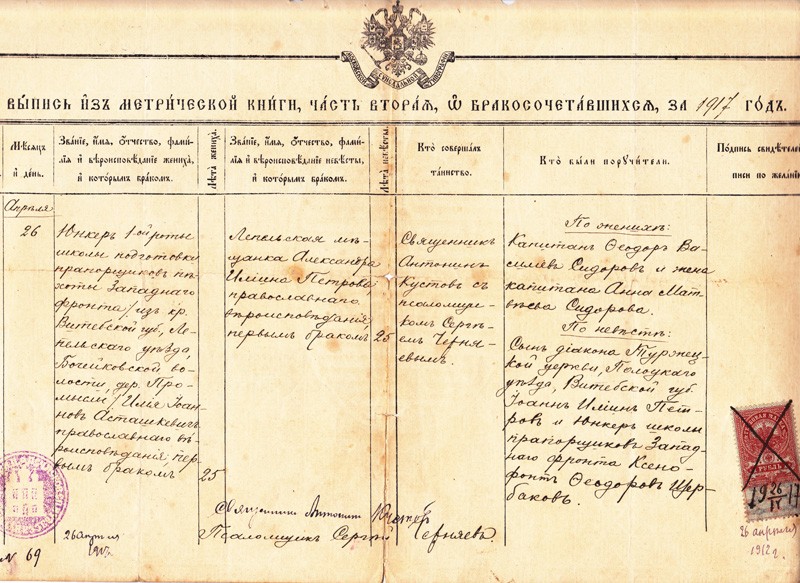 МОСКОВСКОЙ СѴНОДАЛЬНОЙ ТѴПОГРАФІИ
ВЫПИСЬ ИЗЪ МЕТРИЧЕСКОЙ КНИГИ, ЧАСТЬ ВТОРАЯ, Ѡ БРАКОСОЧЕТАВШИХСЯ, ЗА 1917 ГОДЪ.
Мѣсяцъ
и день.
Званіе, имя, отчество, фами-
лія и вѣроисповѣданіе жениха,
и которымъ бракомъ.
Лѣта жениха.
Званіе, имя, отчество, фами-
лія и вѣроисповѣданіе невѣсты,
и которымъ бракомъ.
Лѣта невѣсты.
Кто совершалъ
таинство.
Кто были поручители.
Подпись свидѣтелей
писи по желанію
Апрѣля
26
Юнкеръ 1ой роты
школы подготовки
прапорщиковъ пѣ-
хоты Западнаго
фронта /изъ кр.
Витебской губ., Ле-
пельскаго уѣзда,
Бочейковской во-
лости, дер. Про-
мыслы/ Илія Іоан-
новъ Асташкевичъ
православнаго вѣ-
роисповѣданія пер-
вымъ бракомъ
25
Лепельская мѣ-
щанка Александра
Иліина Петрова
православнаго
вѣроисповѣданія,
первымъ бракомъ
25
Священникъ
Антонинъ
Кустовъ съ
псаломщи-
комъ Сергѣ-
емъ Черня-
евымъ.
По женихѣ:
Капитанъ Ѳеодоръ Ва-
силіевъ Сидоровъ и жена
капитана Анна Мат-
вѣева Сидорова.
По невѣстѣ:
Сынъ діакона Туржец-
кой церкви, Полоцкаго
уѣзда, Витебской губ.
Іоаннъ Иліинъ Пет-
ровъ и юнкеръ школы
прапорщиковъ Запад-
наго фронта Ксено-
фонтъ Ѳеодоровъ Щер-
баковъ.
Священникъ Антонинъ Кустовъ
Псаломщикъ Сергій Черняевъ.
26 апрѣля
1917
N 69
РУБЛЬ
19 26/IV 17
26 апрѣля
1917 г.